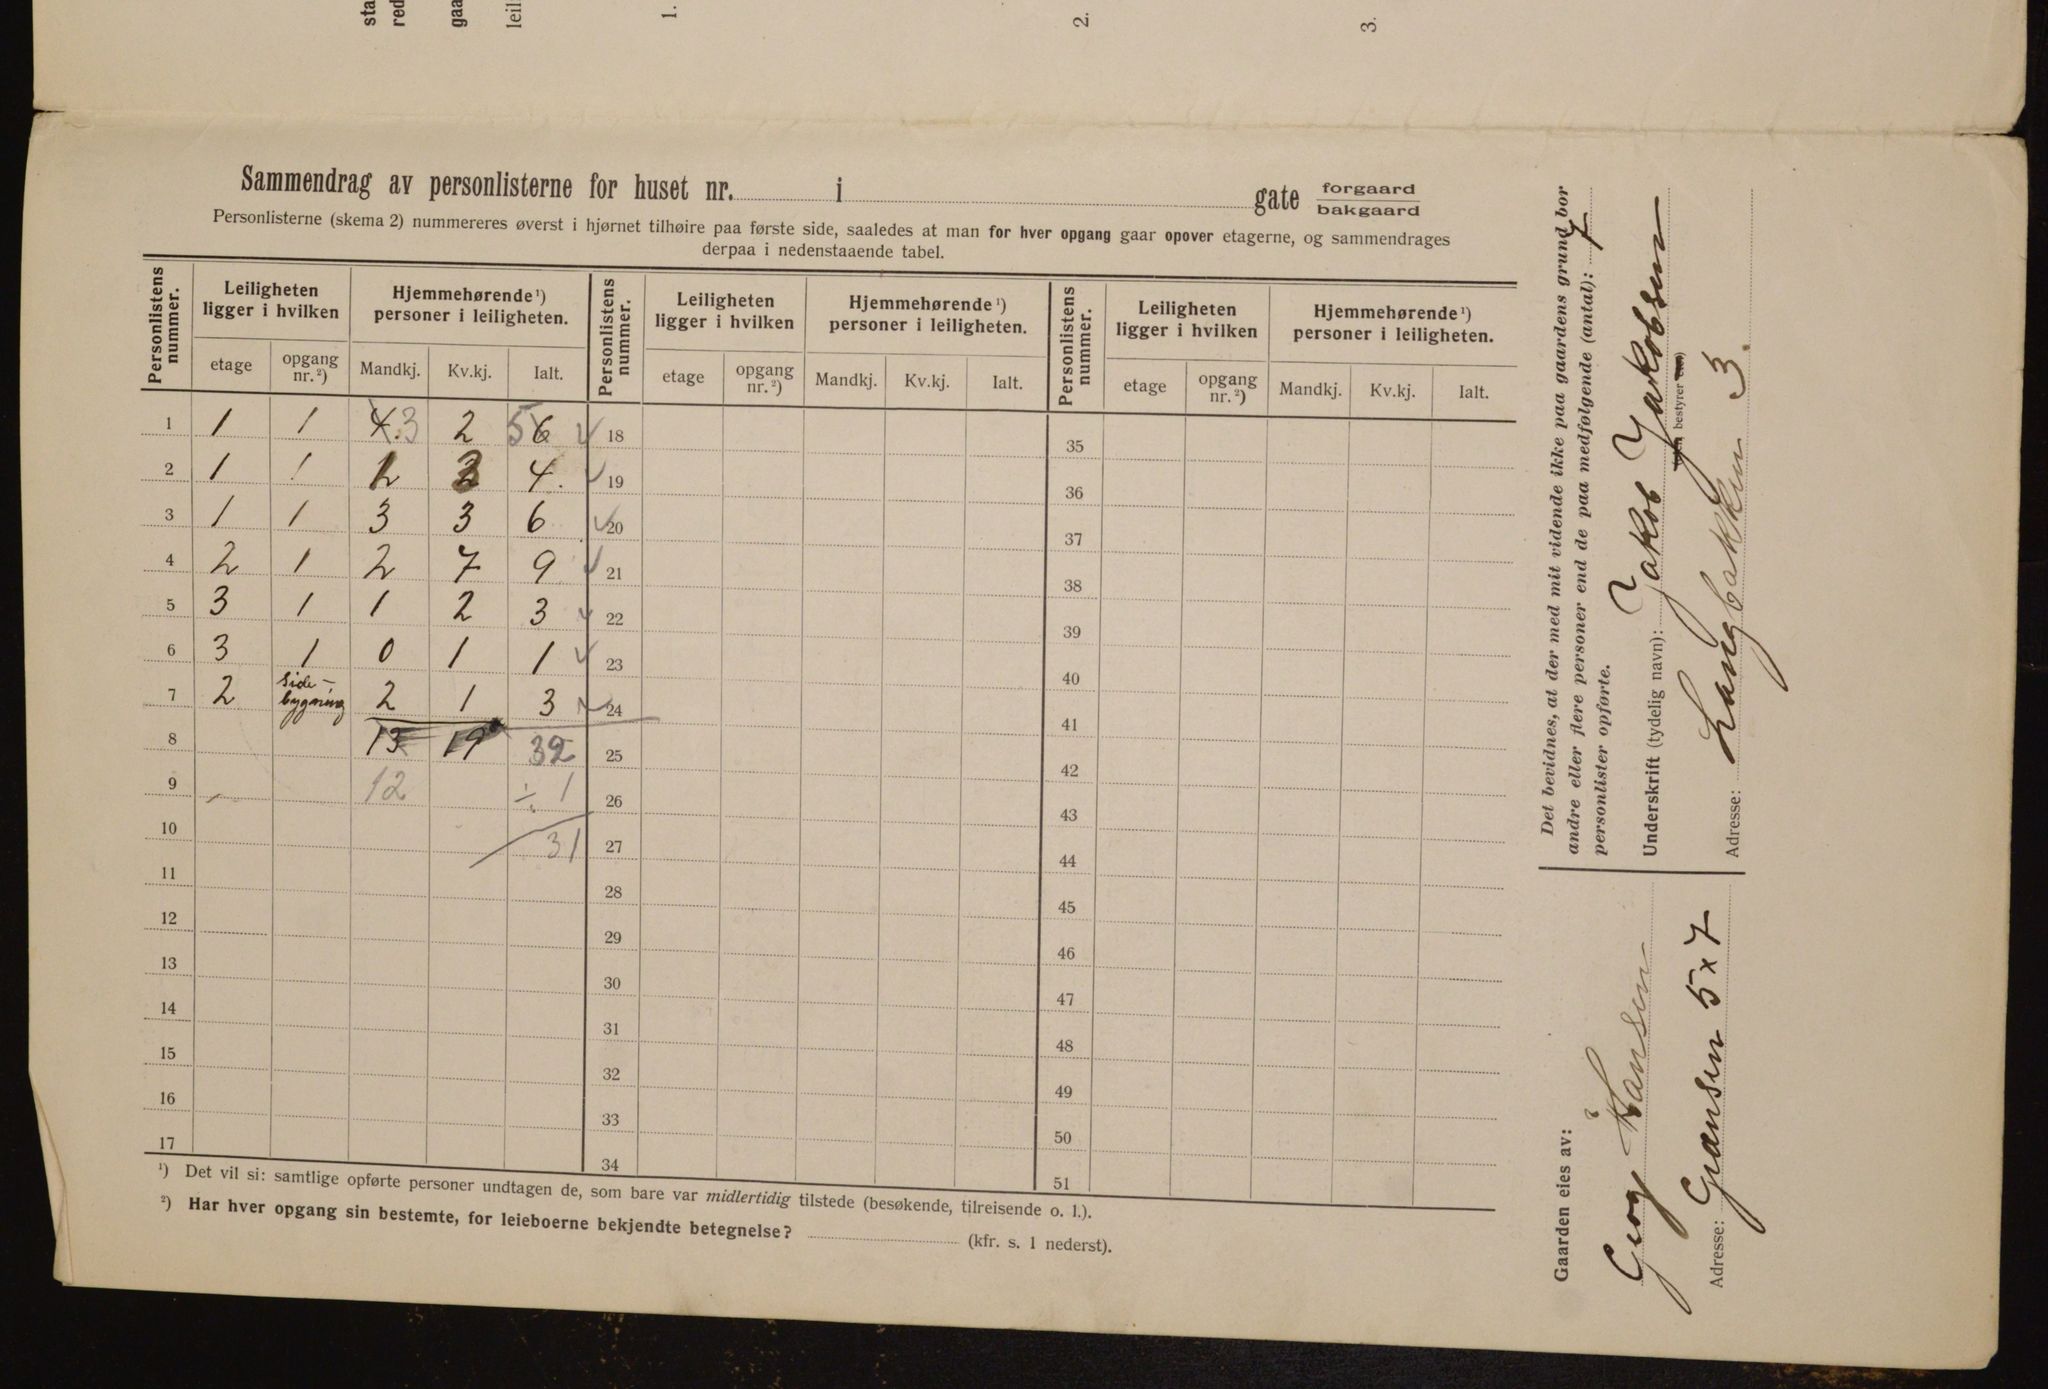 sta
red
gaa
leil
1.
2.
3.
Sammendrag av personlisterne for huset nr. i gate forgaard
bakgaard
Personlisterne (skema 2) nummereres øverst i hjørnet tilhøire paa første side, saaledes at man for hver opgang gaar opover etagerne, og sammendrages
derpaa i nedenstaaende tabel.
Personlistens nummer. Leiligheten ligger i hvilken Hjemmehørende ¹) personer i leiligheten. Personlistens nummer. Leiligheten ligger i hvilken Hjemmehørende ¹) personer i leiligheten. Personlistens nummer. Leiligheten ligger i hvilken Hjemmehørende ¹) personer i leiligheten.
etage opgang nr. ²) Mandkj. Kv.kj. Ialt. etage opgang nr. ²) Mandkj. Kv.kj. Ialt. etage opgang nr. ²) Mandkj. Kv.kj. Ialt.
1 1 1 4. 3 2 5 6 18 35
2 1 1 2 4. 19 36
3 1 1 3 3 6 20 37
4 2 1 2 7 9 21 38
5 3 1 1 2 3 22 39
6 3 1 0 1 1 23 40
7 2 side-bygning 2 1 3 24 41
8 13 19 32 25 42
9 12 ÷ 1 26 43
10 31 27 44
11 28 45
12 29 46
13 30 47
14 31 48
15 32 49
16 33 50
17 34 51
¹) Det vil si: samtlige opførte personer undtagen de, som bare var midlertidig tilstede (besøkende, tilreisende o. l.).
²) Har hver opgang sin bestemte, for leieboerne bekjendte betegnelse? (kfr. s. 1 nederst).
Det bevidnes, at der med mit vidende ikke paa gaardens grund bor
andre eller flere personer end de paa medfølgende (antal): 7
personlister opførte.
Underskrift (tydelig navn): Jakob Jakobsen
bestyrer
Adresse: Langbakken 3.
Gaarden eies av:
Georg Hansen
Adresse: Grønsen 5 x 7